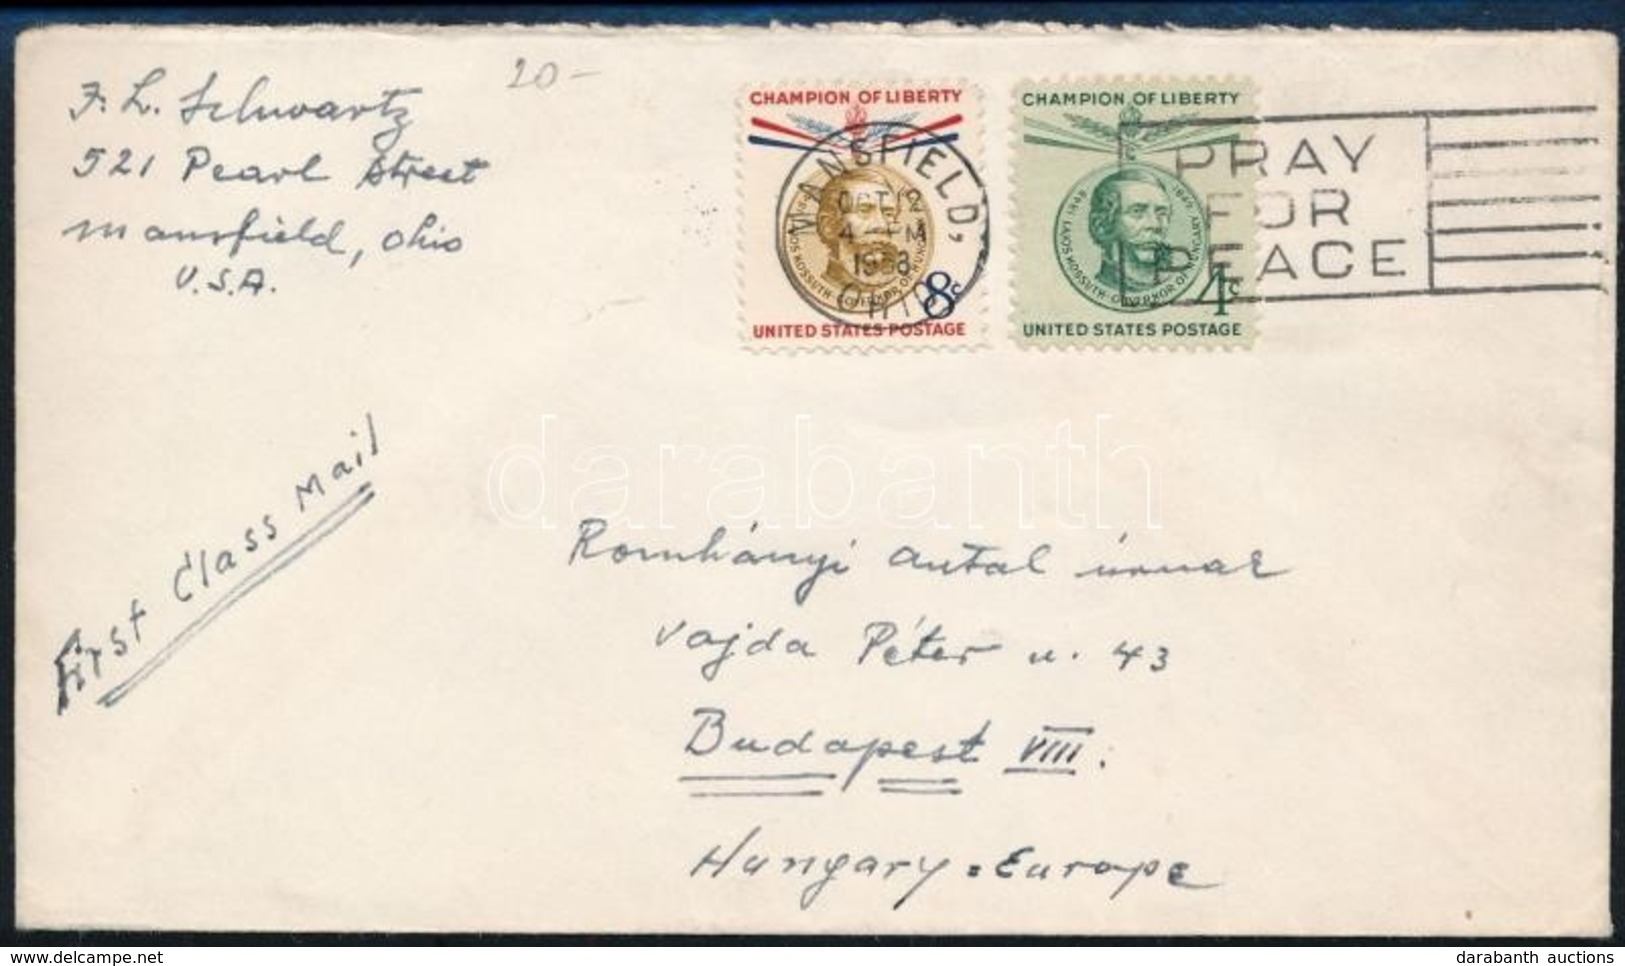 F. L. Schwartz
521 Pearl Street
Mansfield, Ohio
U.S.A.
20-
CHAMPION OF LIBERTY
LAJOS KOSSUTH · GOVERNOR OF HUNGARY
8c
UNITED STATES POSTAGE
MANSFIELD,
OCT
4 - PM
OHIO
CHAMPION OF LIBERTY
LAJOS KOSSUTH · GOVERNOR OF HUNGARY 1849
4c
UNITED STATES POSTAGE
PRAY
FOR
PEACE
First Class Mail
darabanth
Romhányi Antal úrnak
Vajda Péter u. 43
Budapest VIII.
Hungary = Europe
delcampe.net
darabanth auctions